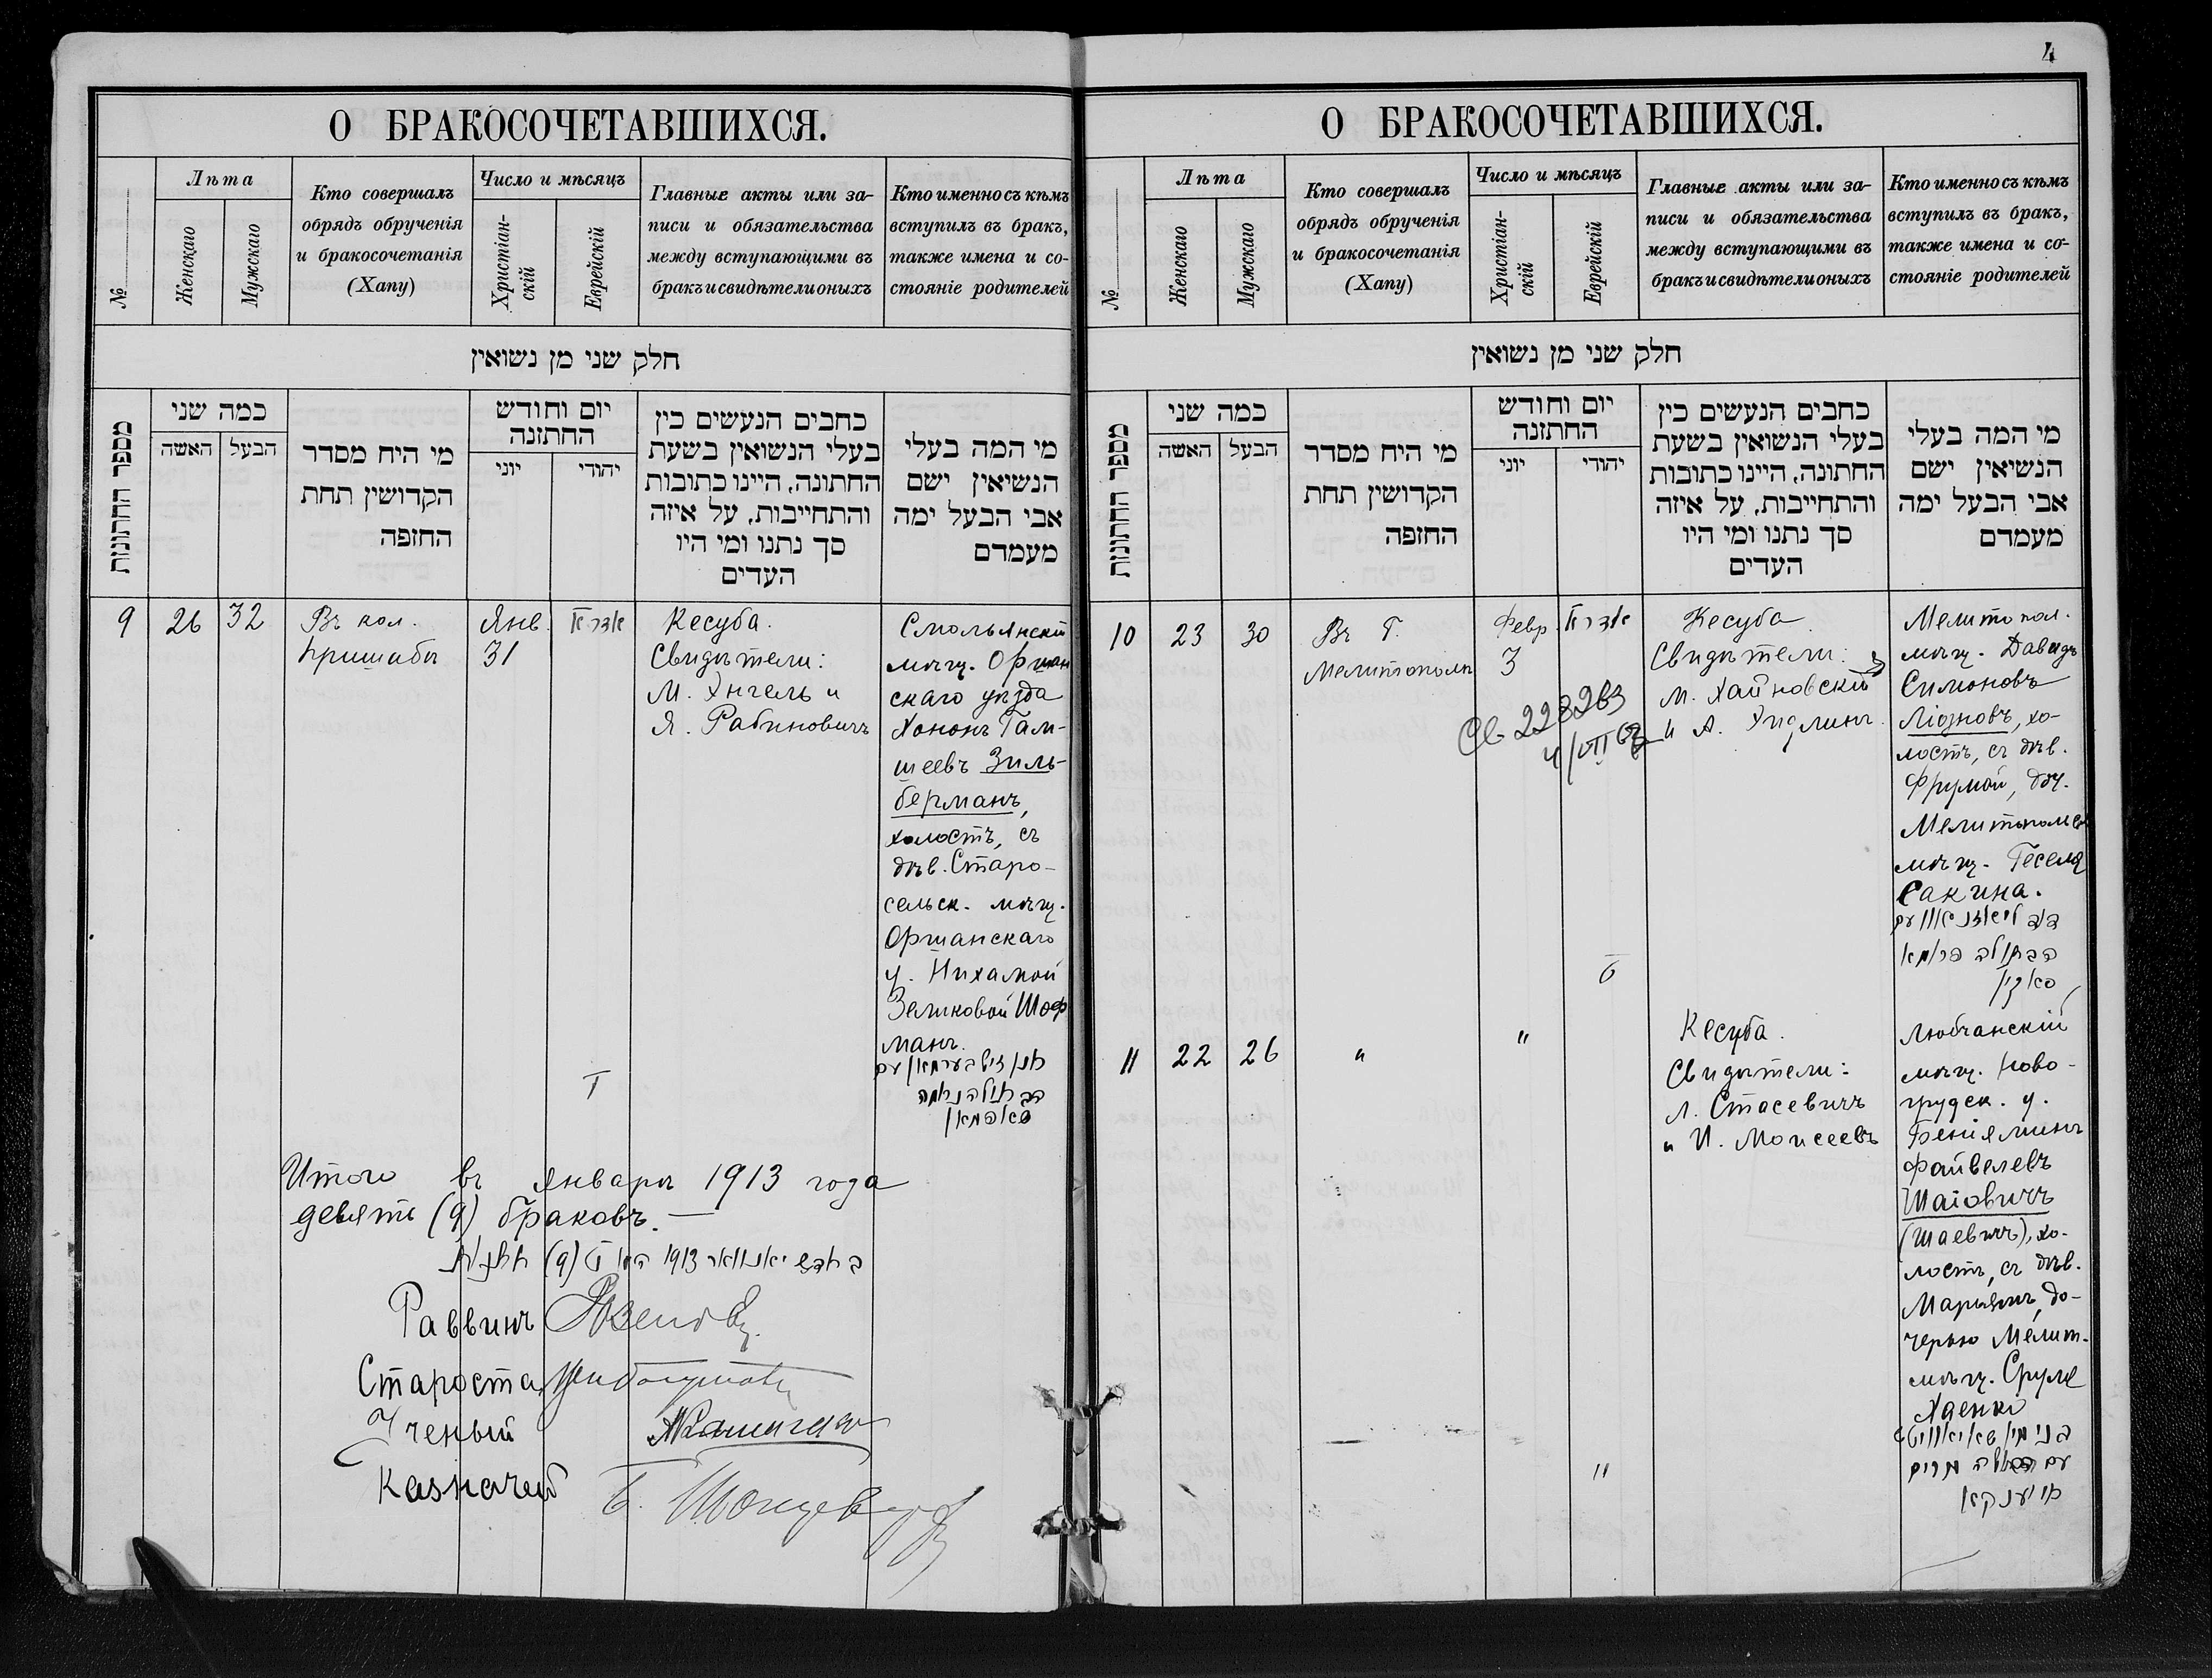 4
О БРАКОСОЧЕТАВШИХСЯ.
№
Лѣта
Женскаго
Мужскаго
Кто совершалъ
обрядъ обрученія
и бракосочетанія
(Хапу)
Число и мѣсяцъ
Христіан-
скій
Еврейскій
Главные акты или за-
писи и обязательства
между вступающими въ
бракъ и свидѣтели оныхъ
Кто именно съ кѣмъ
вступилъ въ бракъ,
также имена и со-
стояніе родителей
חלק שני מן נשואין
מספר החתונות
כמה שני
האשה
הבעל
מי היח מסדר
הקדושין תחת
החזפה
יום וחודש
החתזנה
יוני
יהודי
כחבים הנעשים כין
בעלי הנשואין בשעת
החתונה, היינו כתובות
והתחייבות, על איזה
סך נתנו ומי היו
העדים
מי המה בעלי
הנשיאין ישם
אבי הבעל ימה
מעמדם
9
26
32
Въ кол.
Пришибъ
Янв.
31
אדר א
Кесуба.
Свидѣтели:
М. Энгель и
Я. Рабиновичъ
Смольянскій
мѣщ. Оршан
скаго уѣзда
Хононъ Гам-
шеевъ Зиль-
берманъ,
холостъ, съ
дѣв. Старо-
сельск. мѣщ.
Оршанскаго
у. Нихамой
Зеликовой Шоф
манъ.
חנן זילבערמאן עם
הבתולה נחמה
שאפמאן
Итого въ январѣ 1913 года
девять (9) браковъ. —
בחדש יאנוואר 1913 (9)
Раввинъ
Староста
Ученый
Казначей
Б.
О БРАКОСОЧЕТАВШИХСЯ.
№
Лѣта
Женскаго
Мужскаго
Кто совершалъ
обрядъ обрученія
и бракосочетанія
(Хапу)
Число и мѣсяцъ
Христіан-
скій
Еврейскій
Главные акты или за-
писи и обязательства
между вступающими въ
бракъ и свидѣтели оныхъ
Кто именно съ кѣмъ
вступилъ въ бракъ,
также имена и со-
стояніе родителей
חלק שני מן נשואין
מספר החתונות
כמה שני
האשה
הבעל
מי היח מסדר
הקדושין תחת
החזפה
יום וחודש
החתזנה
יוני
יהודי
כחבים הנעשים כין
בעלי הנשואין בשעת
החתונה, היינו כתובות
והתחייבות, על איזה
סך נתנו ומי היו
העדים
מי המה בעלי
הנשיאין ישם
אבי הבעל ימה
מעמדם
10
23
30
Въ Г.
Мелитополѣ
Февр.
3
אדר א
Св 228283
4/VII 63
Кесуба.
Свидѣтели:
М. Хайновскій
и А. Эйдлинъ.
Мелитопол.
мѣщ. Давидъ
Симоновъ
Ліозновъ, хо-
лостъ, съ дѣв.
Фрумой, доч.
Мелитопольск
мѣщ. Геселя
Сакина.
דוד ליאזנאוו עם
הבתולה פרומא
סאקין
11
22
26
"
"
"
Кесуба.
Свидѣтели:
Л. Стасевичъ
и И. Моисеевъ
Любчанскій
мѣщ. Ново-
грудск. у.
Беніяминъ
Файвелевъ
Шаіовичъ
(Шаевичъ), хо-
лостъ, съ дѣв.
Марьямъ, до-
черью Мелит.
мѣщ. Сруля
Хаенко
בנימין שאיאוויטש
עם הבתולה מרים
חיענקא